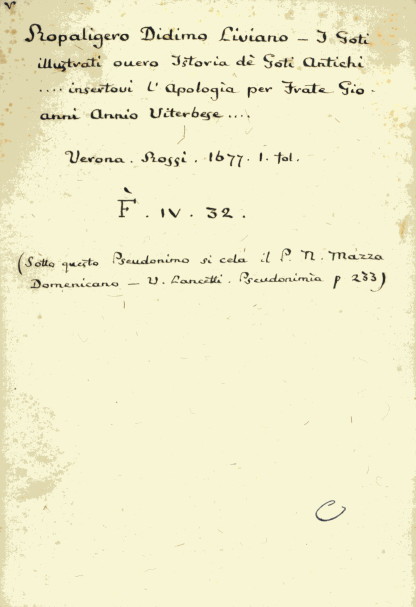 V°
Ropaligero Didimo Liviano – I Goti
illustrati ouero Istoria dè Goti Antichi
.... insertovi l'Apologia per Frate Gio-
anni Annio Viterbese ....
Verona. Rossi. 1677. 1. fol.
È F. IV. 32.
(Sotto questo Pseudonimo si cela il P. N. Mazza
Domenicano – V. Lancetti. Pseudonimia p 233)
C